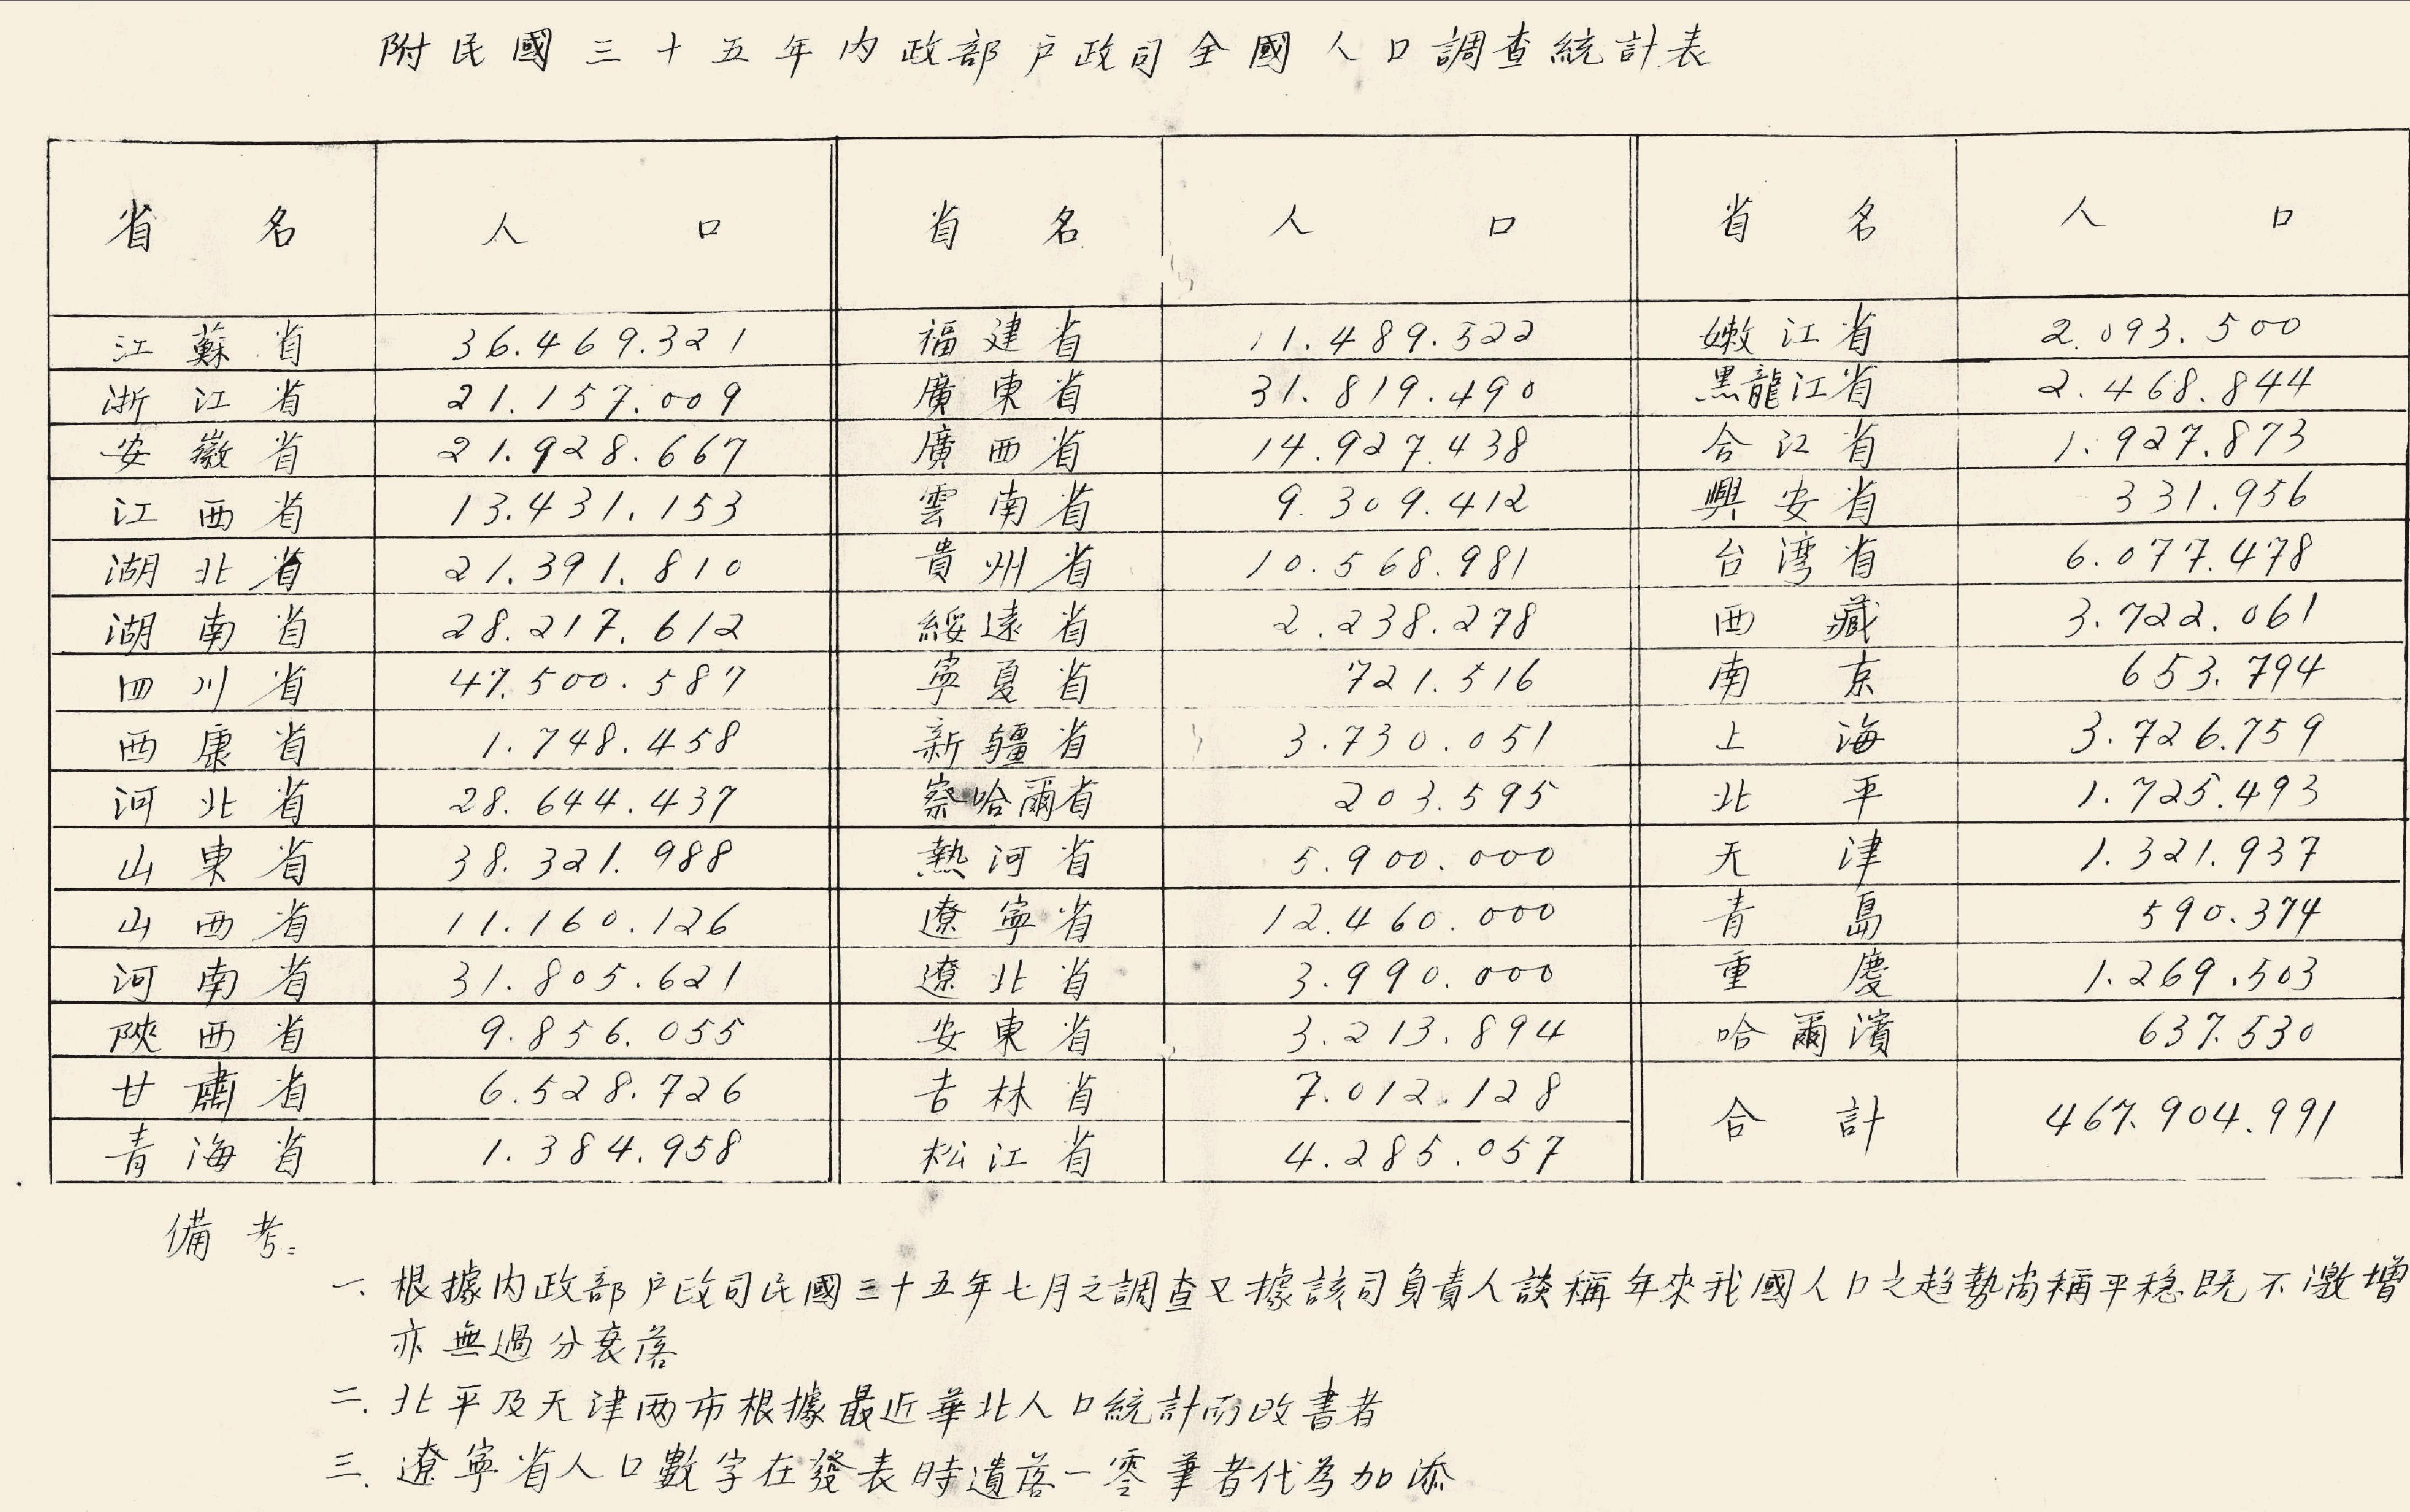 附民國三十五年內政部户政司全國人口調查統計表
省名 人口 省名 人口 省名 人口
江蘇省 36.469.321 福建省 11.489.522 嫩江省 2.093.500
浙江省 21.157.009 廣東省 31.819.490 黑龍江省 2.468.844
安徽省 21.928.667 廣西省 14.927.438 合江省 1.927.873
江西省 13.431.153 雲南省 9.309.412 興安省 331.956
湖北省 21.391.810 貴州省 10.568.981 台湾省 6.077.478
湖南省 28.217.612 綏遠省 2.238.278 西藏 3.722.061
四川省 47.500.587 寧夏省 721.516 南京 653.794
西康省 1.748.458 新疆省 3.730.051 上海 3.726.759
河北省 28.644.437 察哈爾省 203.595 北平 1.725.493
山東省 38.321.988 熱河省 5.900.000 天津 1.321.937
山西省 11.160.126 遼寧省 12.460.000 青島 590.374
河南省 31.805.621 遼北省 3.990.000 重慶 1.269.503
陝西省 9.856.055 安東省 3.213.894 哈爾濱 637.530
甘肅省 6.528.726 吉林省 7.012.128 合計 467.904.991
青海省 1.384.958 松江省 4.285.057
備考:
一、根據内政部户政司民國三十五年七月之調查又據該司負責人談稱年來我國人口之趨勢尚稱平稳既不激增
亦無過分衰落
二、北平及天津两市根據最近華北人口統計而改書者
三、遼寧省人口數字在發表時遺落一零筆者代為加添